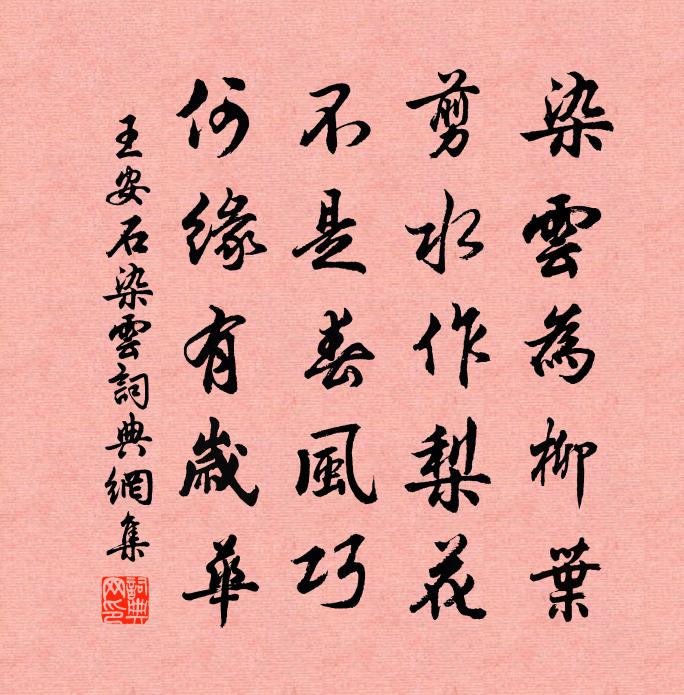 染雲為柳葉
剪水作梨花
不是春風巧
何緣有歲華
王安石染雲詞典網集
詞典網印